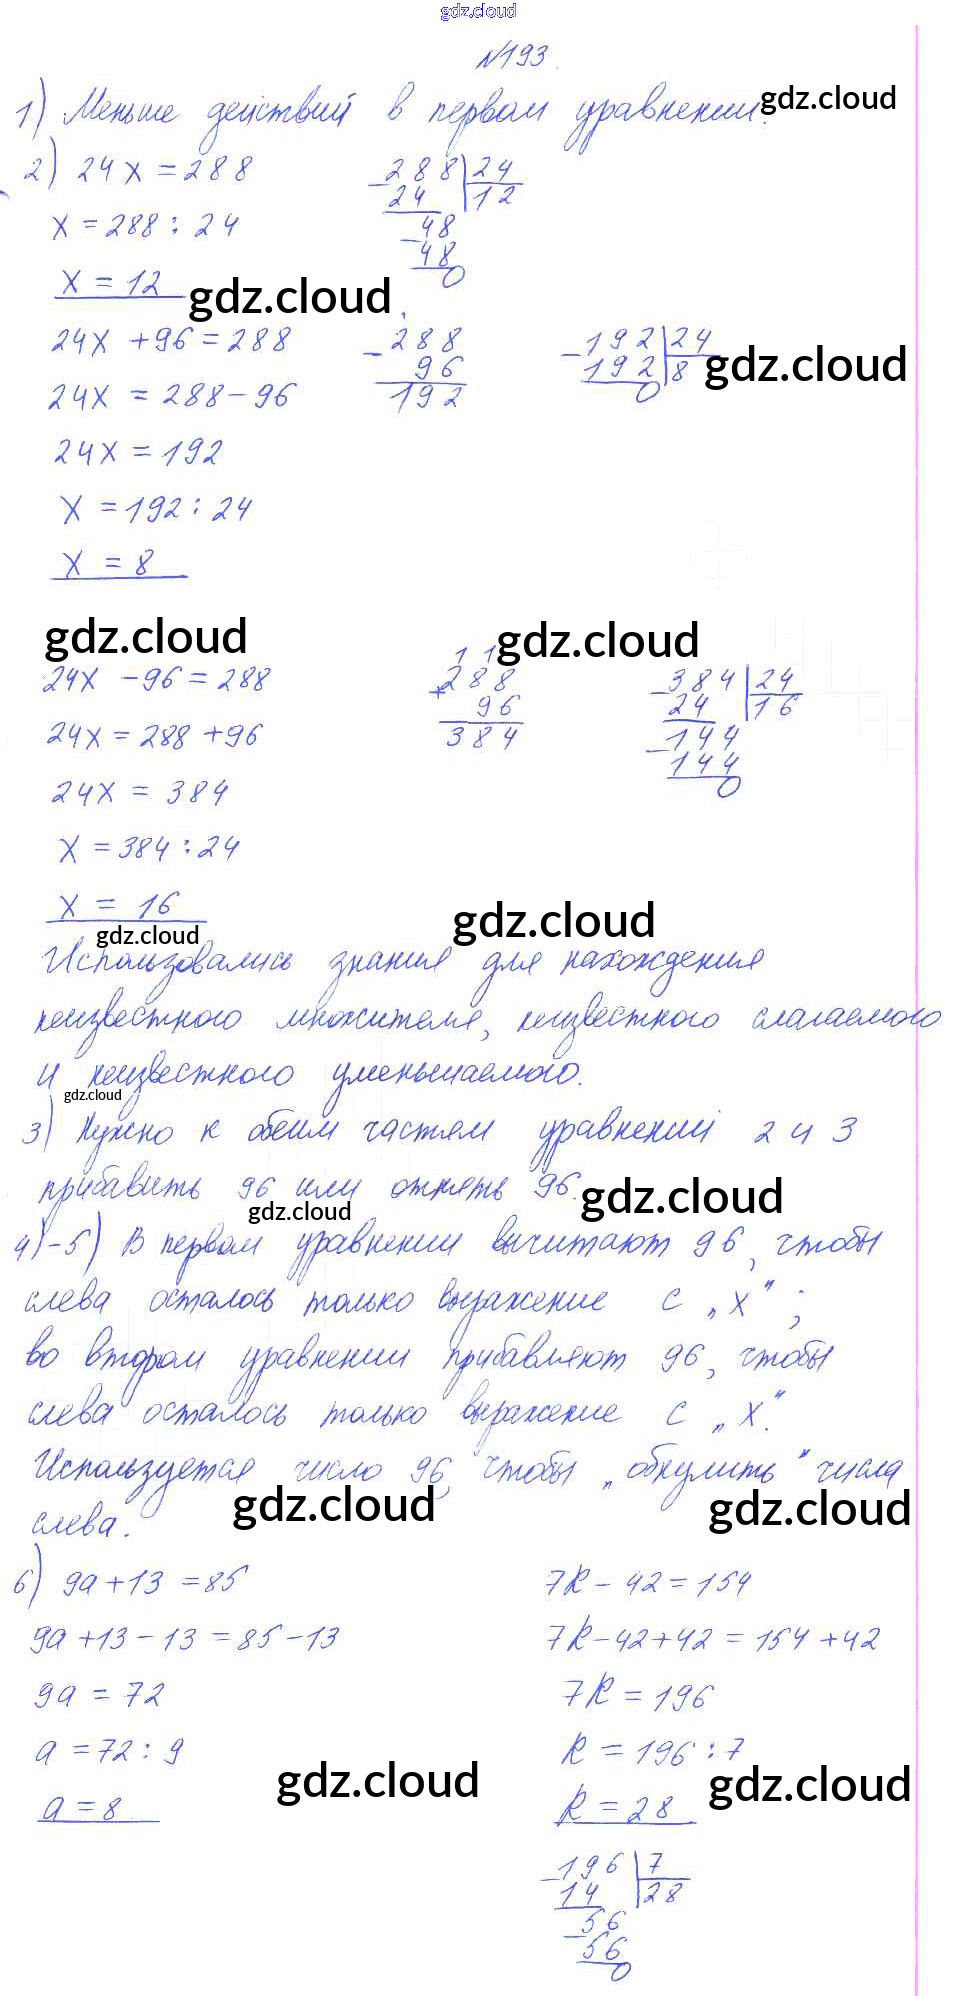 gdz.cloud
№193.
1) Меньше действий в первом уравнении. gdz.cloud
2) 24x = 288
x = 288 : 24
x = 12
288 | 24
- 24 | 12
48
- 48
0
gdz.cloud
24x + 96 = 288
24x = 288 - 96
24x = 192
x = 192 : 24
x = 8
- 288
96
192
- 192 | 24
192 | 8
0
gdz.cloud
gdz.cloud
gdz.cloud
24x - 96 = 288
24x = 288 + 96
24x = 384
x = 384 : 24
x = 16
1 1
+ 288
96
384
- 384 | 24
24 | 16
- 144
144
0
gdz.cloud
gdz.cloud
Использовались знания для нахождения
неизвестного множителя, неизвестного слагаемого
и неизвестного уменьшаемого.
gdz.cloud
3) Нужно к обеим частям уравнений 2 и 3
прибавить 96 или отнять 96. gdz.cloud
gdz.cloud
4)-5) В первом уравнении вычитают 96, чтобы
слева осталось только выражение с „x“;
во втором уравнении прибавляют 96, чтобы
слева осталось только выражение с „x“.
Используется число 96, чтобы „обнулить“ числа
слева.
gdz.cloud
gdz.cloud
6) 9a + 13 = 85
9a + 13 - 13 = 85 - 13
9a = 72
a = 72 : 9
a = 8
gdz.cloud
7k - 42 = 154
7k - 42 + 42 = 154 + 42
7k = 196
k = 196 : 7
k = 28
gdz.cloud
- 196 | 7
14 | 28
- 56
56
0